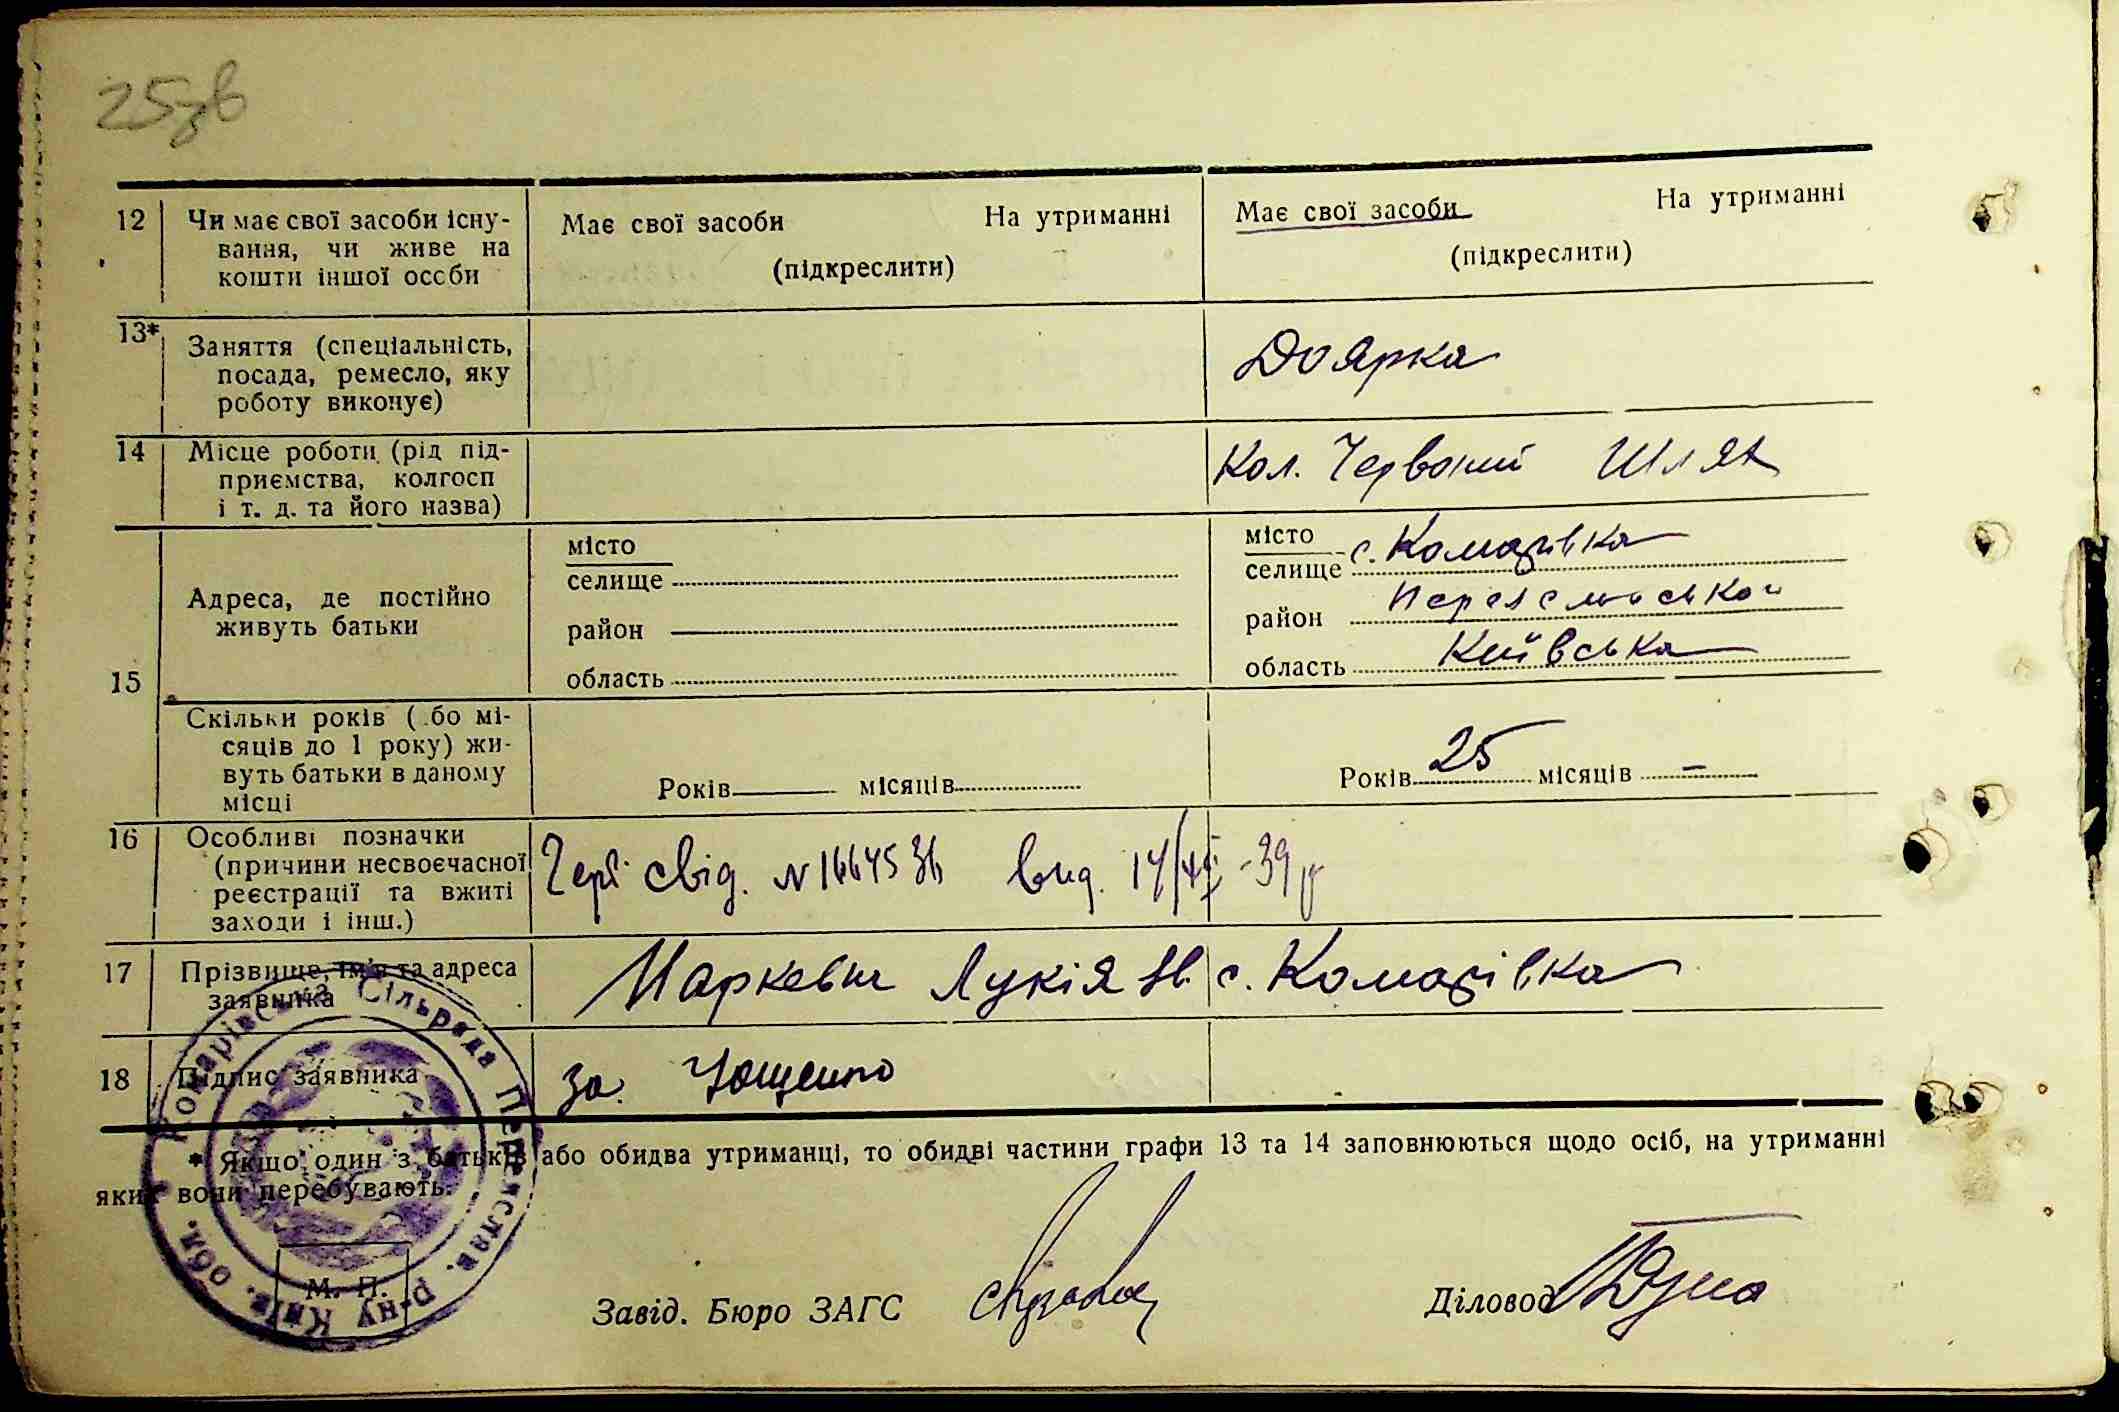 25зв
12 Чи має свої засоби існу-
вання, чи живе на
кошти іншої особи
Має свої засоби На утриманні
(підкреслити)
Має свої засоби На утриманні
(підкреслити)
13* Заняття (спеціальність,
посада, ремесло, яку
роботу виконує)
Доярка
14 Місце роботи (рід під-
приємства, колгосп
і т. д. та його назва)
Кол. Червоний Шлях
15
Адреса, де постійно
живуть батьки
місто
селище
район
область
місто
селище с. Комарівка
район
область Київська
Скільки років ( бо мі-
сяців до 1 року) жи-
вуть батьки в даному
місці
Років місяців
Років 25 місяців –
16 Особливі позначки
(причини несвоєчасної
реєстрації та вжиті
заходи і інш.)
свід. № 1664536 вид.
17 Прізвище, ім'я та адреса
заявника
Маркевич Лукія Ів. с. Комарівка
18 Підпис заявника
за Ющенко
* Якщо один з батьків або обидва утриманці, то обидві частини графи 13 та 14 заповнюються щодо осіб, на утриманні
яких вони перебувають.
Комарівська Сільрада Переяслав. р-ну Київ. обл.
М. П.
Завід. Бюро ЗАГС
Діловод